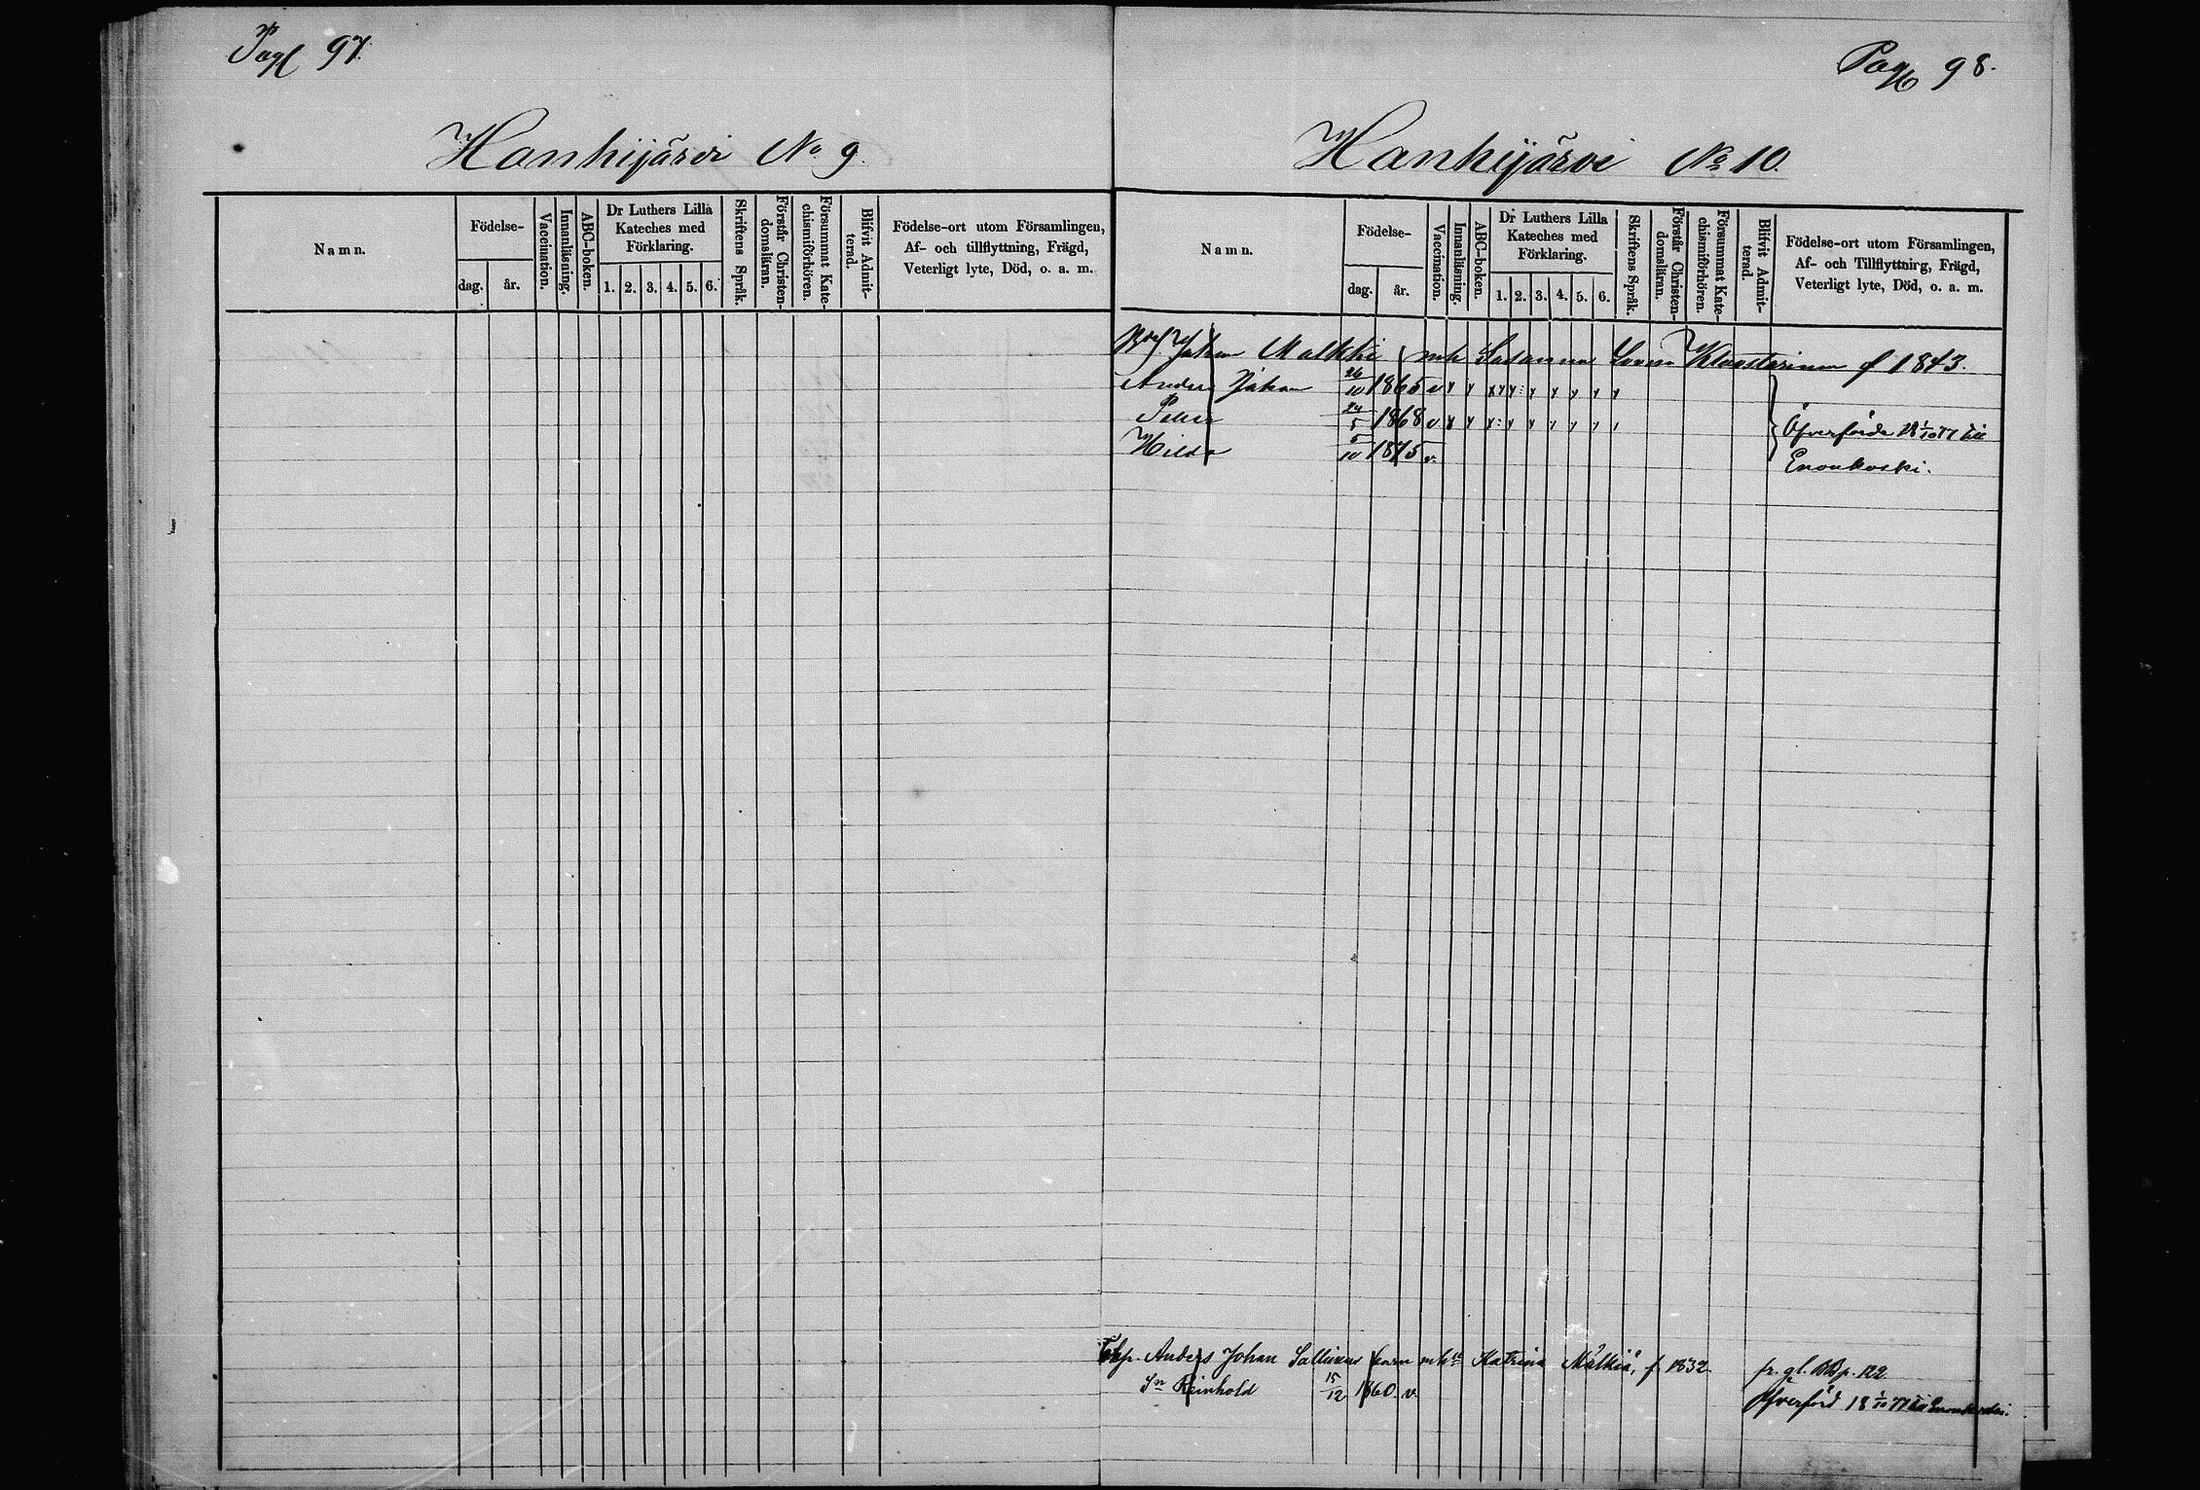 Pag 97.
Hanhijärvi No 9.
Namn.
Födelse-
dag. år.
Vaccination.
Innanläsning.
ABC-boken.
Dr Luthers Lilla
Kateches med
Förklaring.
1. 2. 3. 4. 5. 6.
Skriftens Språk.
Förstår Christen-
domsläran.
Försummat Kate-
chismiförhören.
Blifvit Admit-
terad.
Födelse-ort utom Församlingen,
Af- och tillflyttning, Frägd,
Veterligt lyte, Död, o. a. m.
Pag 98.
Hanhijärvi No 10.
Namn.
Födelse-
dag. år.
Vaccination.
Innanläsning.
ABC-boken.
Dr Luthers Lilla
Kateches med
Förklaring.
1. 2. 3. 4. 5. 6.
Skriftens Språk.
Förstår Christen-
domsläran.
Försummat Kate-
chismiförhören.
Blifvit Admit-
terad.
Födelse-ort utom Församlingen,
Af- och Tillflyttnirg, Frägd,
Veterligt lyte, Död, o. a. m.
Johan Malkki Susanna f 1843.
Anders Johan 26/10 1865 v
Petter 24/5 1868 v
Hilda 5/10 1875 v.
Öfverförde 18 1/10 77 till
Enonkoski.
Anders Johan Sallinens Katrina Malkiä, f 1832. fr. gl. BB p. 122
Sn Reinhold 15/12 1860. v. Öfverförd 18 1/10 77 till Enonkoski.